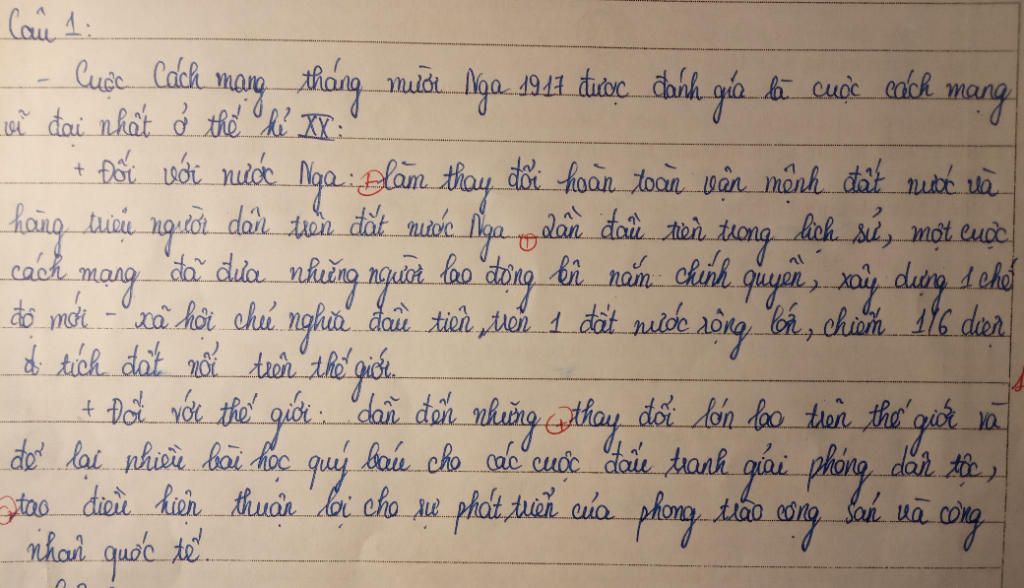 Câu 1:
- Cuộc Cách mạng tháng mười Nga 1917 được đánh giá là cuộc cách mạng
vĩ đại nhất ở thế kỉ XX:
+ Đối với nước Nga: + làm thay đổi hoàn toàn vận mệnh đất nước và
hàng triệu người dân trên đất nước Nga + Lần đầu tiên trong lịch sử, một cuộc
cách mạng đã đưa những người lao động lên nắm chính quyền, xây dựng 1 chế
độ mới - xã hội chủ nghĩa đầu tiên, trên 1 đất nước rộng lớn, chiếm 1/6 diện
tích đất nổi trên thế giới.
+ Đối với thế giới: dẫn đến những + thay đổi lớn lao trên thế giới và
để lại nhiều bài học quý báu cho các cuộc đấu tranh giải phóng dân tộc,
+ tạo điều kiện thuận lợi cho sự phát triển của phong trào cộng sản và công
nhân quốc tế.